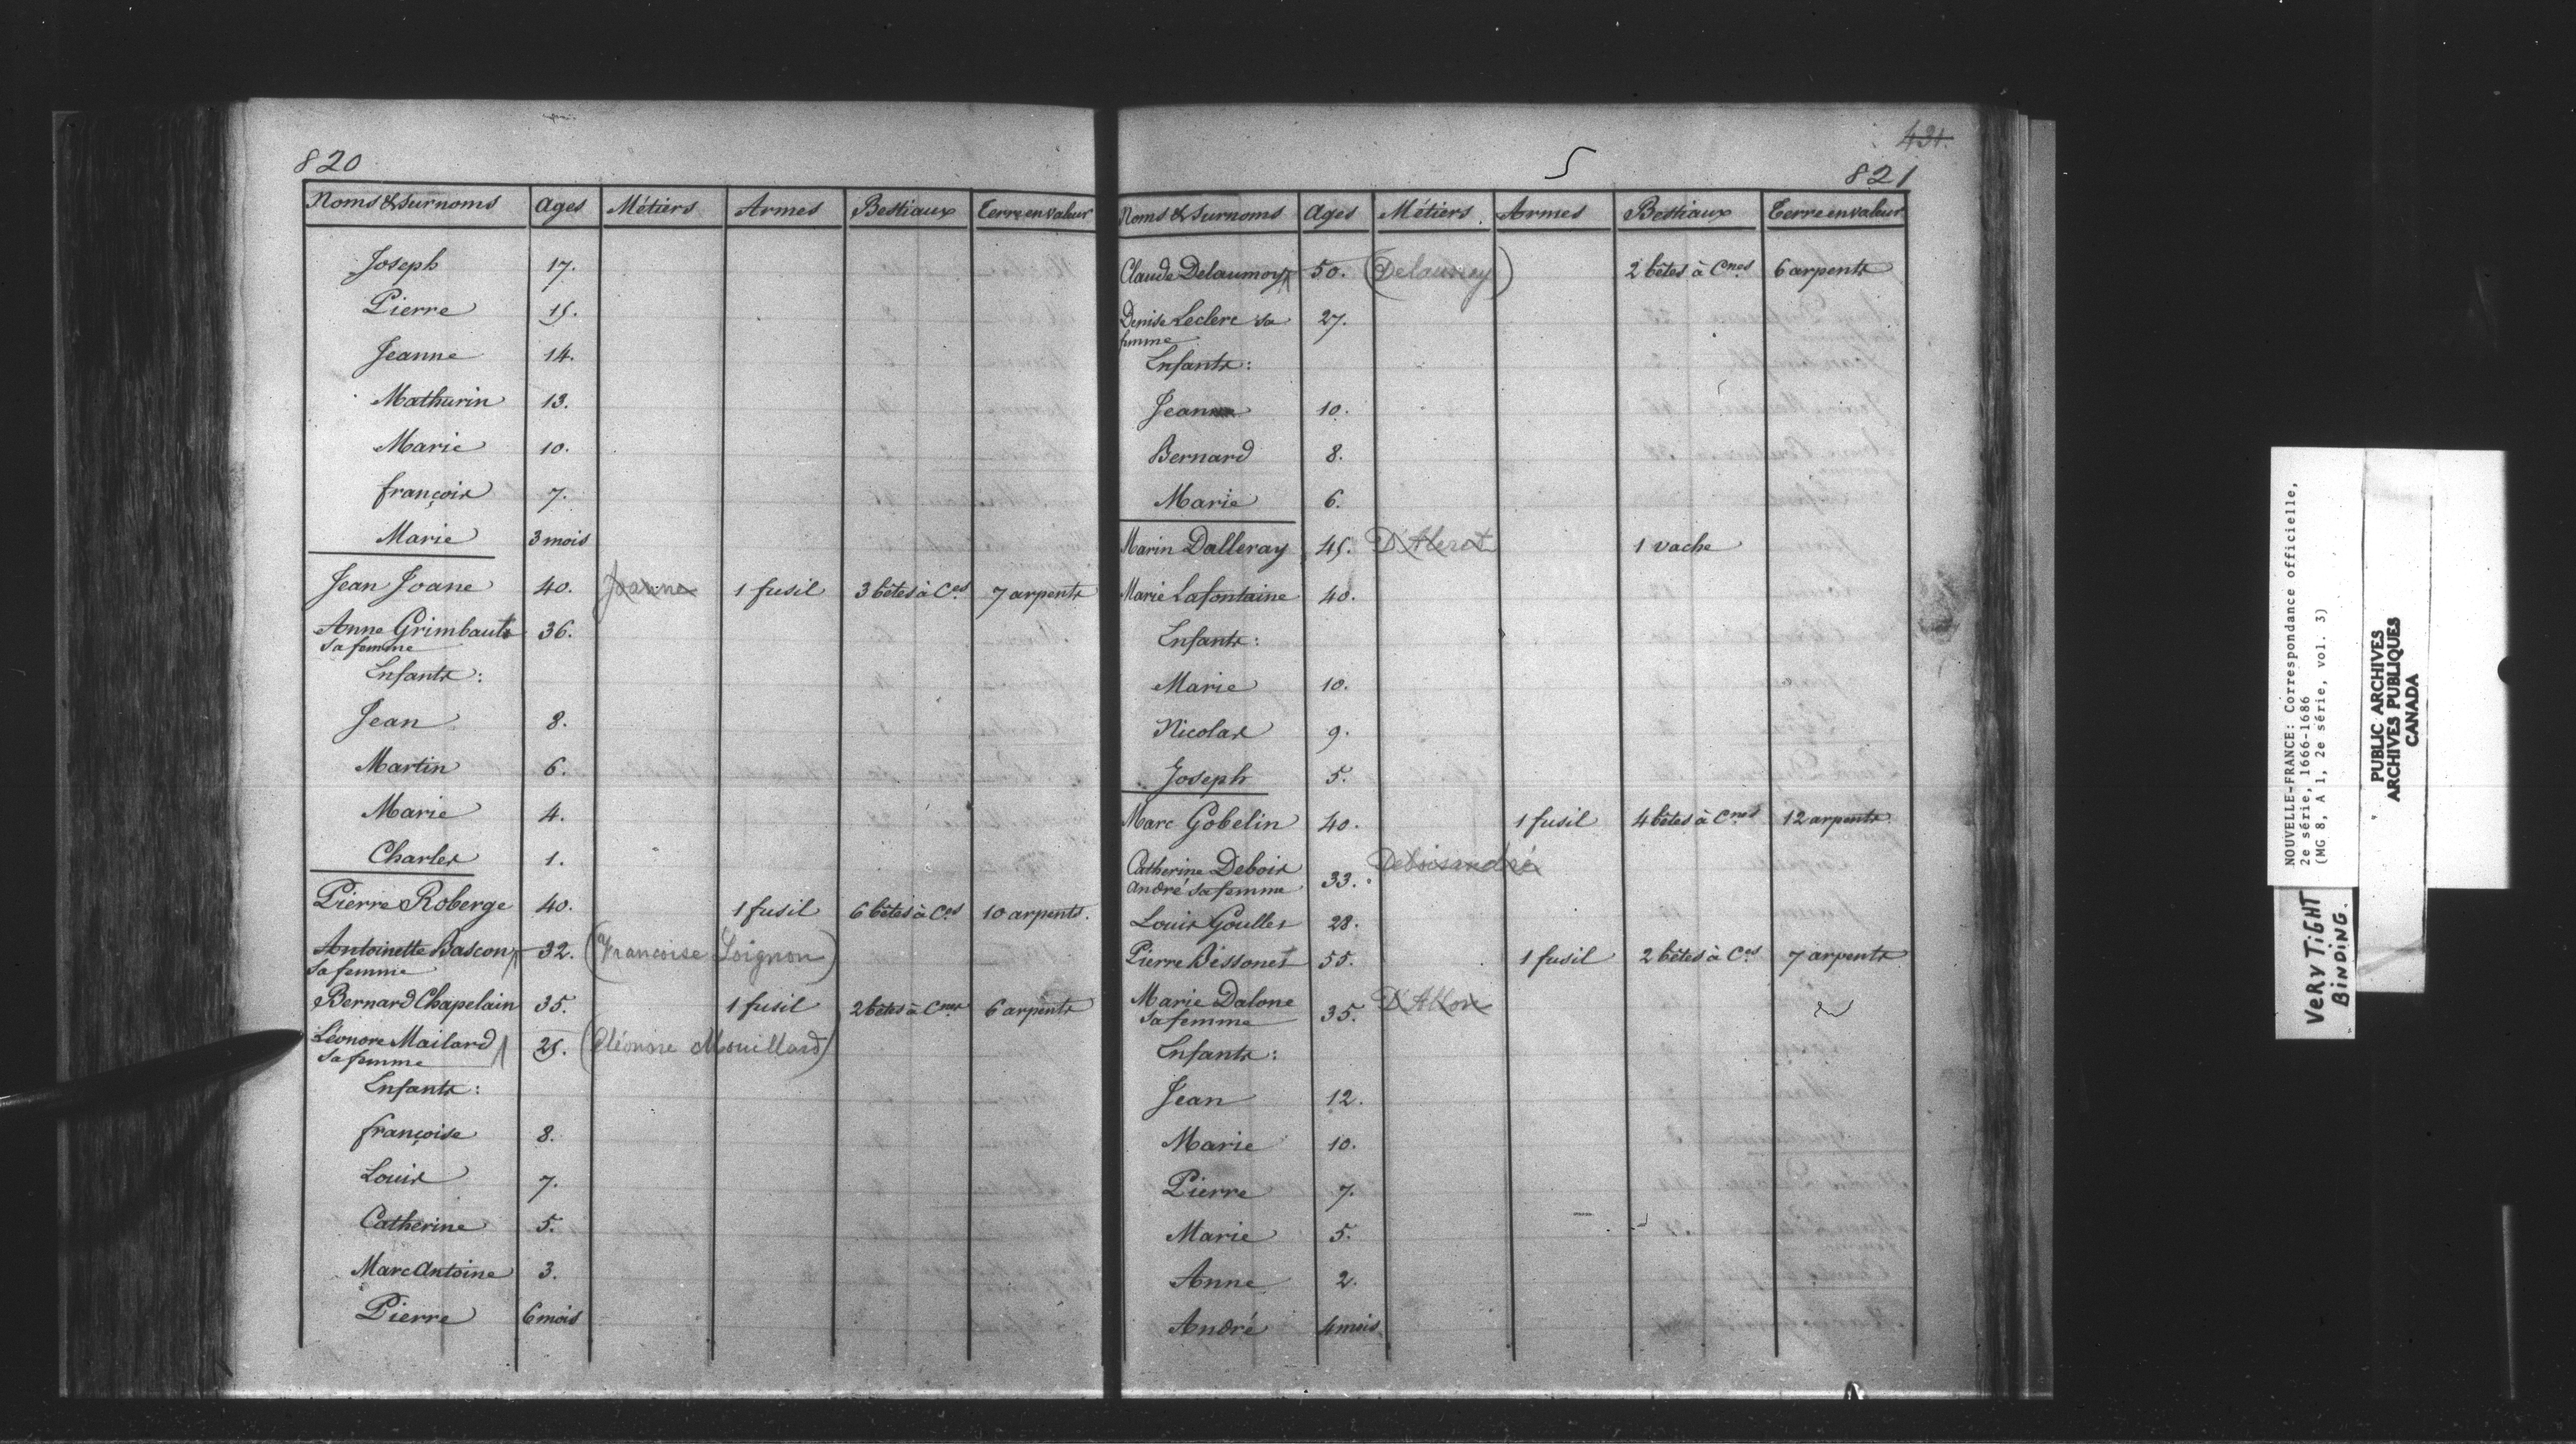 820
Noms & surnoms Ages Métiers Armes Bestiaux Terre en valeur
Joseph 17.
Pierre 15.
Jeanne 14.
Mathurin 13.
Marie 10.
françois 7.
Marie 3 mois
Jean Joane 40. Joanne 1 fusil 3 bêtes à Ces 7 arpents
Anne Grimbault 36.
sa femme
Enfants:
Jean 8.
Martin 6.
Marie 4.
Charles 1.
Pierre Roberge 40. 1 fusil 6 bêtes à Ces 10 arpents.
Antoinette Bascon 32. (Francoise Loignon)
sa femme
Bernard Chapelain 35. 1 fusil 2 bêtes à Cnes 6 arpents
Léonore Mailard 25. (Eléonore Mouillard)
sa femme
Enfants:
françoise 8.
Louis 7.
Catherine 5.
Marc Antoine 3.
Pierre 6 mois
431.
5
821
Noms & surnoms Ages Métiers Armes Bestiaux Terre en valeur
Claude Delaumoy 50. (Delauney) 2 bêtes à Cnes 6 arpents
Denise Leclerc sa 27.
femme
Enfants:
Jean 10.
Bernard 8.
Marie 6.
Marin Dalleray 45. D'Alerat 1 vache
Marie Lafontaine 40.
Enfants:
Marie 10.
Nicolas 9.
Joseph 5.
Marc Gobelin 40. 1 fusil 4 bêtes à Cnes 12 arpents
Catherine Debois Deboisandré
André sa femme 33.
Louis Goulles 28.
Pierre Bessonet 55. 1 fusil 2 bêtes à Ces 7 arpents
Marie Dalone D'Allon
sa femme 35.
Enfants:
Jean 12.
Marie 10.
Pierre 7.
Marie 5.
Anne 2.
André 4 mois.
NOUVELLE-FRANCE: Correspondance officielle,
2e série, 1666-1686
(MG 8, A 1, 2e série, vol. 3)
VERY TIGHT
BINDING.
PUBLIC ARCHIVES
ARCHIVES PUBLIQUES
CANADA